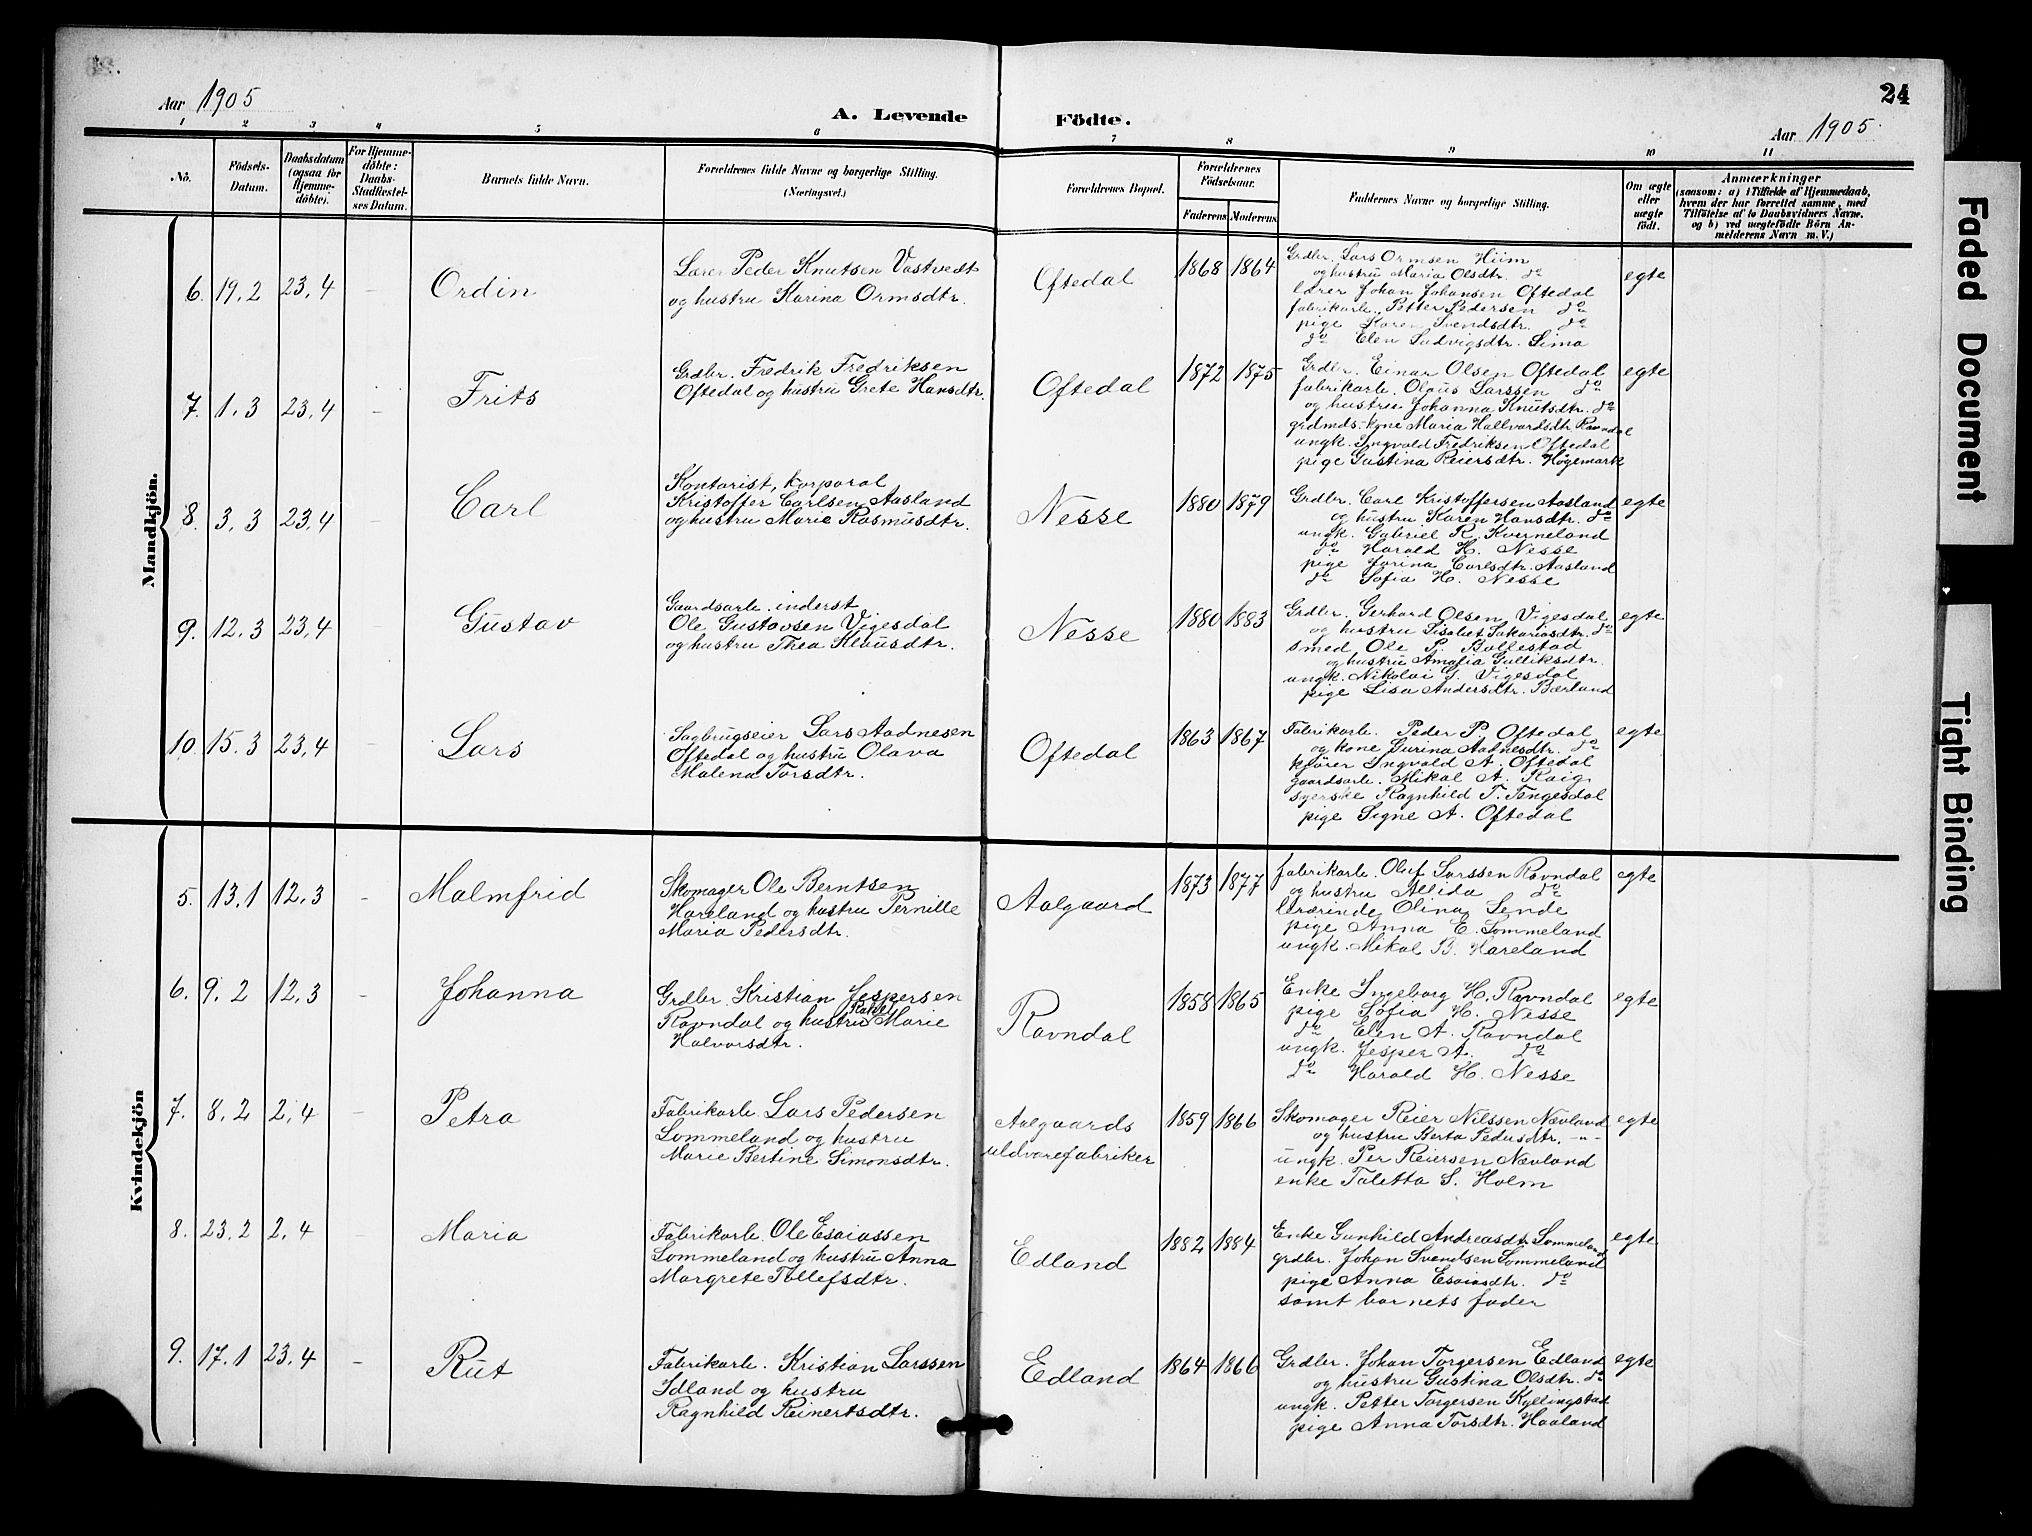 24
Aar 1905
A. Levende Födte.
Aar 1905.
1 2 3 4 5 6 7 8 9 10 11
No.
Födsels-
Datum.
Daabsdatum
(ogsaa for
Hjemme-
döbte).
For Hjemme-
döbte:
Daabs-
Stadfæstel-
ses Datum.
Barnets fulde Navn.
Forældrenes fulde Navne og borgerlige Stilling.
(Næringsvei.)
Forældrenes Bopæl.
Forældrenes
Födselsaar.
Faderens
Moderens
Faddernes Navne og borgerlige Stilling.
Om ægte
eller
uægte
födt.
Anmærkninger
(saasom: a) i Tilfælde af Hjemmedaab,
hvem der har forrettet samme, med
Tilföielse af to Daabsvidners Navne.
og b) ved uægtefödte Börn An-
melderens Navn m. V.)
Mandkjön.
6. 19,2 23,4 - Ordin
Lærer Peder Knutsen Vastvedt
og hustru Karina Ormsdtr.
Oftedal 1868 1864
Grdbr. Lars Ormsen Hiim
og hustru Maria Olsdtr. do
lærer Johan Johansen Oftedal
fabrikarb. Petter Pedersen do
pige Karen Svendsdtr. do
do Elen Ludvigsdtr. Lima
egte
7. 1.3 23,4 - Frits
Grdbr. Fredrik Fredriksen
Oftedal og hustru Grete Hansdtr.
Oftedal 1872 1875
Grdbr. Einar Olsen Oftedal
fabrikarb. Olaus Larssen do
og hustru Johanna Knutsdtr. do
grdmds. kone Maria Hallvardsdtr. Ravndal
ungk. Ingvald Fredriksen Oftedal
pige Gustina Reiersdtr. Høgemark
egte
8. 3,3 23,4 Carl
Kontorist, korporal
Kristoffer Carlsen Aasland
og hustru Marie Rasmusdtr.
Nesse 1880 1879
Grdbr. Carl Kristoffersen Aasland
og hustru Karen Hansdtr. do
ungk. Gabriel R. Kverneland
do Harald H. Nesse
pige Jorina Carlsdtr. Aasland
do Sofia H. Nesse
egte
9. 12.3 23,4 Gustav
Gaardsarb. inderst
Ole Gustavsen Vigesdal
og hustru Thea Klausdtr.
Nesse 1880 1883
Grdbr. Gerhard Olsen Vigesdal
og hustru Lisabet Sakariasdtr. do
smed Ole P. Bollestad
og hustru Amalia Gulliksdtr.
ungk. Nikolai G. Vigesdal
pige Lisa Andersdtr. Bærland
egte
10. 15.3 23,4 Lars
Sagbrugseier Lars Aadnesen
Oftedal og hustru Olava
Malena Torsdtr.
Oftedal 1863 1867
Fabrikarb. Peder P. Oftedal
og kone Surina Aadnesdtr. do
kjører Ingvald A. Oftedal
gaardsarb. Mikal A. Raig
syerske Ragnhild T. Tengesdal
pige Signe A. Oftedal
egte
Kvindekjön
5. 13.1 12.3 - Malmfrid
Skomager Ole Berntsen
Hareland og hustru Pernille
Maria Pedersdtr.
Aalgaard 1873 1877
fabrikarb. Oluf Larssen Ravndal
og hustru Allida do
lærerinde Olina Lende
pige Anna E. Sommeland
ungk. Mikal B. Hareland
egte
6. 9.2 12.3 - Johanna
Grdbr. Kristian Jespersen
Ravndal og hustru Marie
Halvorsdtr.
Ravndal 1858 1865
Enke Ingeborg H. Ravndal
pige Sofia H. Nesse
do Elen A. Ravndal
ungk. Jesper A. do
do Harald H. Nesse
egte
7. 8.2 2,4 - Petra
Fabrikarb. Lars Pedersen
Sommeland og hustru
Marie Bertine Simonsdtr.
Aalgaards
uldvarefabriker
1859 1866
Skomager Reier Nilssen Nævland
og hustru Berta Pedersdtr. -"-
ungk. Per Reiersen Nævland
enke Taletta S. Holm
egte
8. 23.2 2,4 Maria
Fabrikarb. Ole Esaiassen
Sommeland og hustru Anna
Margrete Tollefsdtr.
Edland 1882 1884
Enke Gunhild Andreasdtr. Sommeland
grdbr. Johan Svendsen Sommeland
pige Anna Esaiasdtr. do
samt barnets fader
egte
9. 17.1 23,4 - Rut
Fabrikarb. Kristian Larssen
Idland og hustru
Ragnhild Reinertsdtr.
Edland 1864 1866
Grdbr. Johan Torgersen Edland
og hustru Gustina Olsdtr. do
ungk. Petter Torgersen Kyllingstad
pige Anna Torsdtr. Haaland
egte
Faded Document
Tight Binding